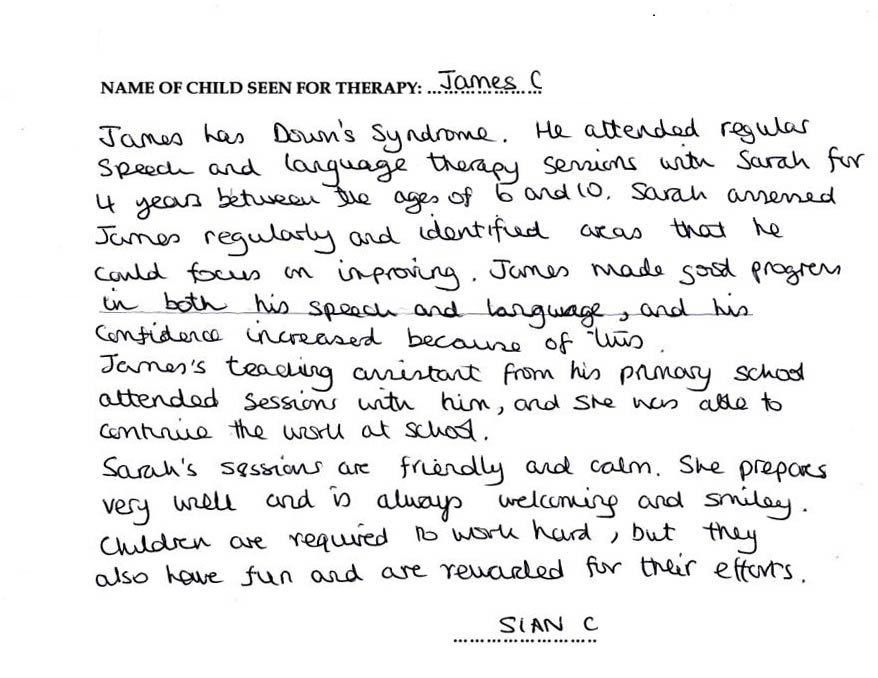 NAME OF CHILD SEEN FOR THERAPY: James C
James has Down's Syndrome. He attended regular
Speech and language therapy sessions with Sarah for
4 years between the ages of 6 and 10. Sarah assessed
James regularly and identified areas that he
could focus on improving. James made good progress
in both his speech and language, and his
confidence increased because of this.
James's teaching assistant from his primary school
attended sessions with him, and she was able to
continue the work at school.
Sarah's sessions are friendly and calm. She prepares
very well and is always welcoming and smiley.
Children are required to work hard, but they
also have fun and are rewarded for their efforts.
SIAN C